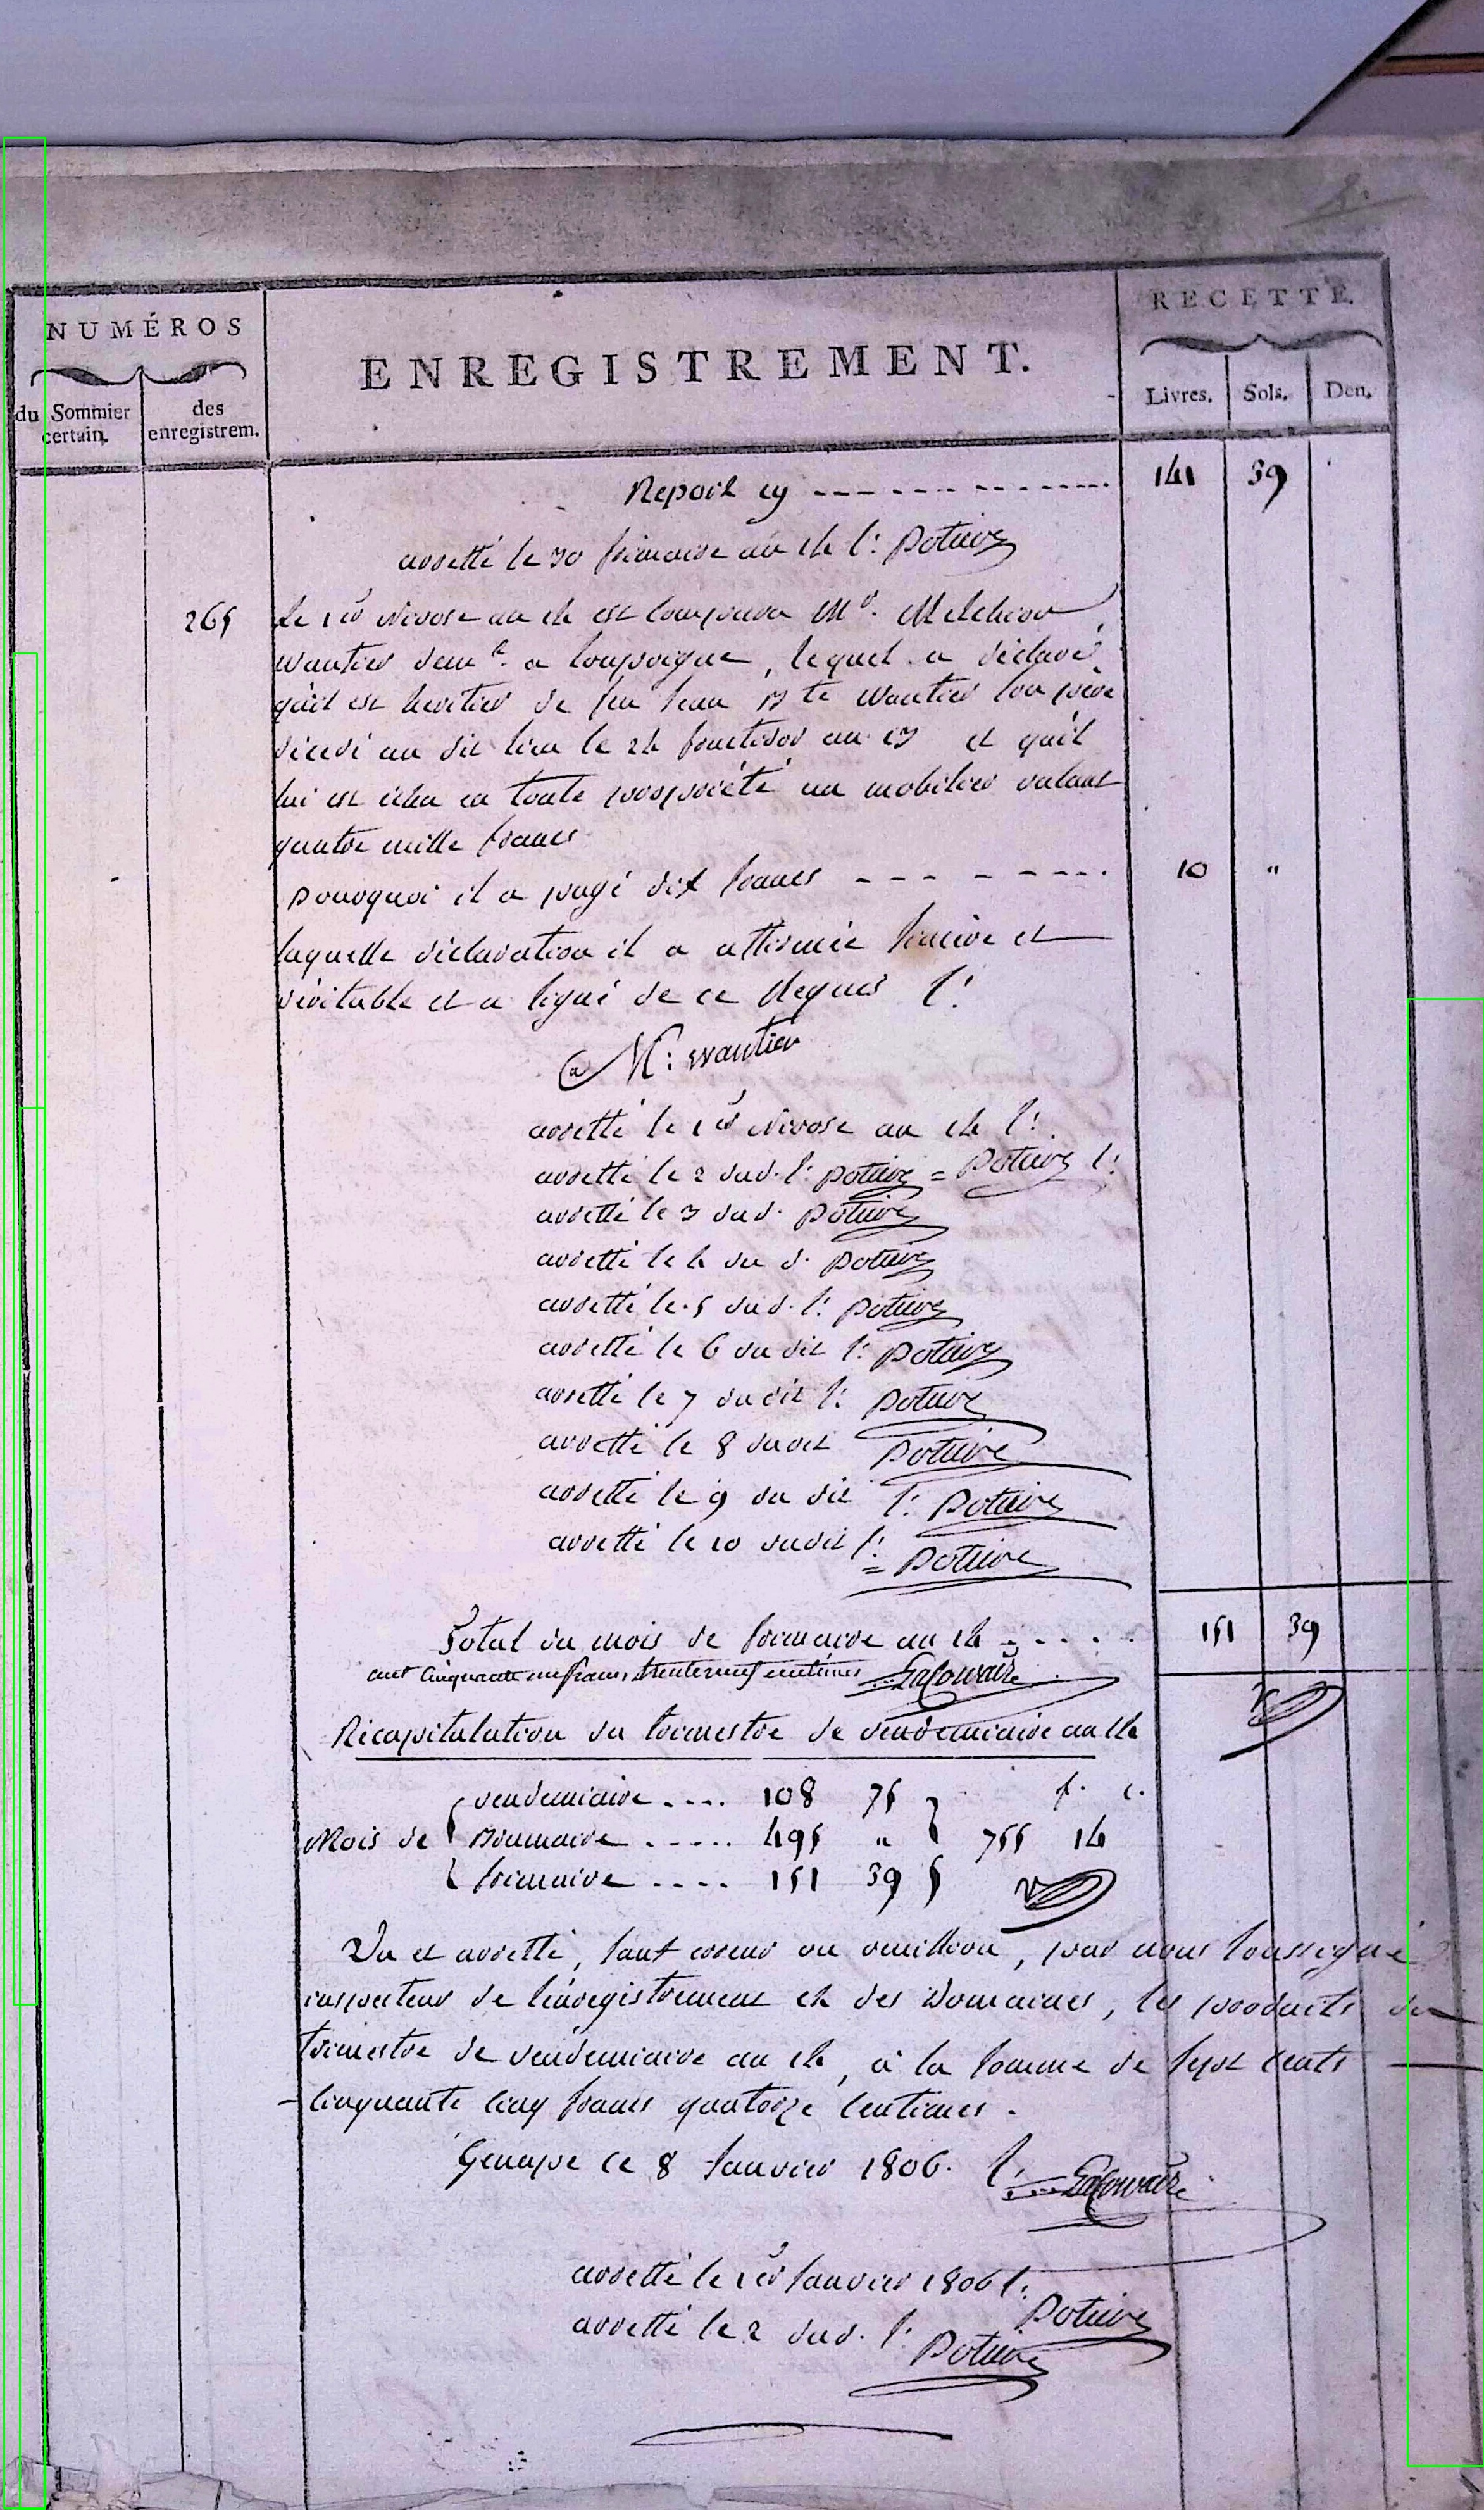 NUMÉROS
ENREGISTREMENT.
RECETTE.
du Sommier certain.
des enregistrem.
Livres. Sols. Den.
Report cy - - - - - - - - - - 141 39
arretté le 30 frimaire an 14 s: Potier
265 Le 1er Nivose an 14 est comparu Mr. Melchior
Wautier dem.t a Loupoigne, lequel a déclaré
qu'il est heritier de feu Jean Bte Wautier son père
décédé au dit lieu le 24 fructidor an 13 et qu'il
lui est échu en toute propriété un mobilier valant
quatre mille francs
pourquoi il a payé dix francs - - - - - - - 10 "
laquelle déclaration il a affirmée sincère et
véritable et a signé de ce requis s:
M: wautier
arretté le 1er Nivose an 14 s:
arretté le 2 dud. s: Potier = Potier s:
arretté le 3 dud. Potier
arretté le 4 du d. Potier
arretté le 5 dud. s: Potier
arretté le 6 du dit s: Potier
arretté le 7 du dit s: Potier
arretté le 8 dudit Potier
arretté le 9 du dit s: Potier
arretté le 10 dudit s: = Potier
Total du mois de frimaire an 14 - . . . . 151 39
cent cinquante un francs, trente neuf centimes
Récapitulation du trimestre de vendemiaire an 14
vendemiaire .... 108 75 f. c.
Mois de Brumaire ..... 495 " 755 14
frimaire .... 151 39
Vu et arretté, sauf erreur ou omission, par nous soussigné
inspecteur de l'enregistrement et des Domaines, les produits du
trimestre de vendémiaire an 14, à la somme de sept cents
cinquante cinq francs quatorze centimes.
Genape le 8 Janvier 1806. s:
arretté le 1er Janvier 1806 s: Potier
arretté le 2 dud. s: Potier